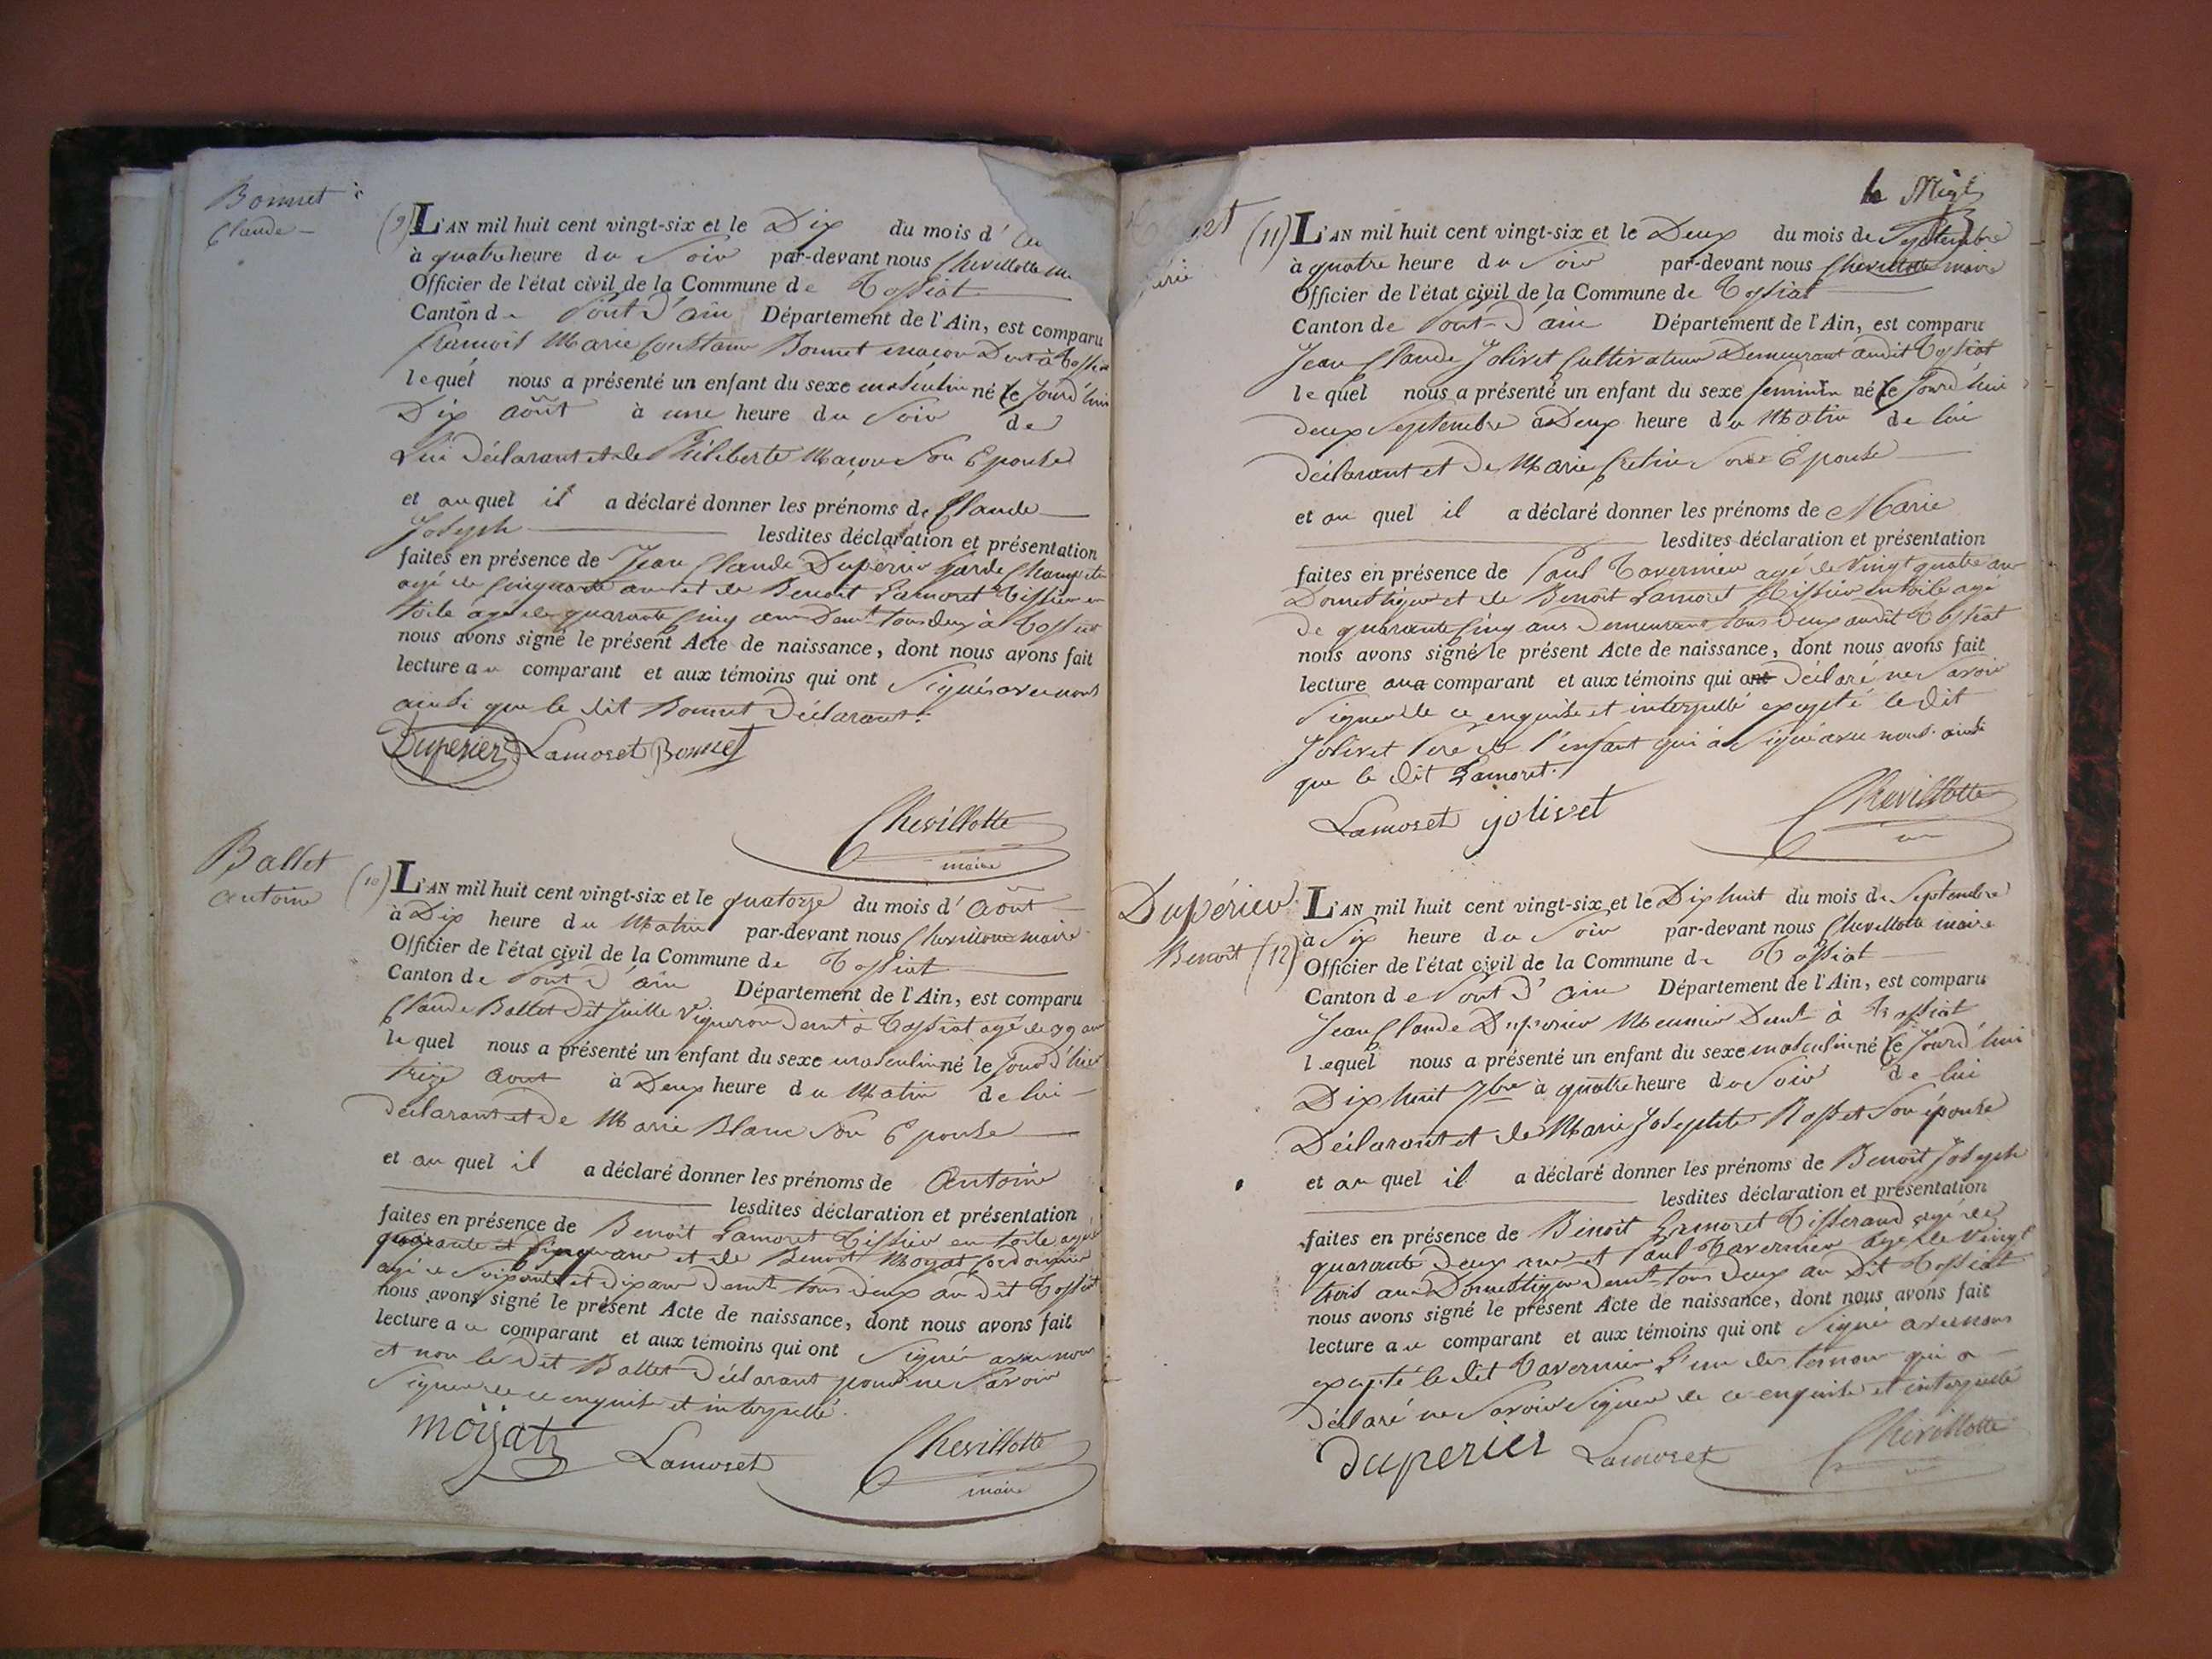 Bonnet
Claude
(9) L'AN mil huit cent vingt-six et le Dix du mois d'
à quatre heure du Soir par-devant nous Chevillotte
Officier de l'état civil de la Commune de Tossiat
Canton de Pont d'ain Département de l'Ain, est comparu
francois Marie Constant Bonnet macon Dmt à Tossiat
lequel nous a présenté un enfant du sexe masculin né le Jourd'hui
Dix août à une heure du Soir de
Lui déclarant et de Philiberte Maçon Son Epouse
et auquel il a déclaré donner les prénoms de Claude
Joseph lesdites déclaration et présentation
faites en présence de Jean Claude Duperier garde Champetre
agé de Cinquante ans et de Benoit Lamoret Tissier en
toile agé de quarante Cinq ans Demt tous deux à Tossiat
nous avons signé le présent Acte de naissance, dont nous avons fait
lecture au comparant et aux témoins qui ont Signés avec nous
ainsi que le dit Bonnet Déclarant.
Duperier Lamoret Bonnet
Chevillotte
maire
Ballet
Antoine
(10) L'AN mil huit cent vingt-six et le quatorze du mois d'Août
à Dix heure du Matin par-devant nous Chevillotte maire
Officier de l'état civil de la Commune de Tossiat
Canton de Pont d'ain Département de l'Ain, est comparu
Claude Ballet Dit Vigneron demt à Tossiat agé de ans
lequel nous a présenté un enfant du sexe masculin né le Jourd'hier
treize Aout à Deux heure du Matin de lui
déclarant et de Marie Blanc Son Epouse
et auquel il a déclaré donner les prénoms de Antoine
lesdites déclaration et présentation
faites en présence de Benoit Lamoret Tissier en toile agé de
quarante et Cinq ans et de Benoit Moyat Cordonnier
agé de Soixante et dix ans demt tous deux au dit Tossiat
nous avons signé le présent Acte de naissance, dont nous avons fait
lecture au comparant et aux témoins qui ont Signés avec nous
et non le dit Ballet Déclarant pour ne Savoir
Signer de ce enquis et interpellé.
moÿat Lamoret Chevillotte
maire
(11) L'AN mil huit cent vingt-six et le Deux du mois de Septembre
à quatre heure du Soir par-devant nous Chevillotte maire
Officier de l'état civil de la Commune de Tossiat
Canton de Pont-d'ain Département de l'Ain, est comparu
Jean Claude Jolivet Cultivateur Demeurant audit Tossiat
lequel nous a présenté un enfant du sexe feminin né le Jourd'hui
deux Septembre à Deux heure du Matin de lui
déclarant et de Marie Cretin Son Epouse
et auquel il a déclaré donner les prénoms de Marie
lesdites déclaration et présentation
faites en présence de Paul Tavernier agé de Vingt quatre ans
Domestique et de Benoit Lamoret Tissier en toile agé
de quarante Cinq ans Demeurant tous Deux audit Tossiat
nous avons signé le présent Acte de naissance, dont nous avons fait
lecture aux comparant et aux témoins qui ont Déclaré ne Savoir
Signer de ce enquis et interpellé excepté le dit
Jolivet Pere de l'enfant qui a Signé avec nous ainsi
que le dit Lamoret.
Lamoret jolivet Chevillotte
Dupérier
Benoît (12) L'AN mil huit cent vingt-six et le Dix huit du mois de Septembre
à Six heure du Soir par-devant nous Chevillotte maire
Officier de l'état civil de la Commune de Tossiat
Canton de Pont d'ain Département de l'Ain, est comparu
Jean Claude Duperier Meunier Demt à Tossiat
lequel nous a présenté un enfant du sexe masculin né le Jourd'hui
Dix huit 7bre à quatre heure du Soir de lui
Déclarant et de Marie Josephte Rosset Son épouse
et auquel il a déclaré donner les prénoms de Benoit Joseph
lesdites déclaration et présentation
faites en présence de Benoit Lamoret Tisserand agé de
quarante Deux ans et Paul Tavernier agé de Vingt
trois ans Domestique demt tous Deux au Dit Tossiat
nous avons signé le présent Acte de naissance, dont nous avons fait
lecture au comparant et aux témoins qui ont Signé avec nous
excepté le dit Tavernier L'un des temoins qui a
Déclaré ne Savoir Signer de ce enquis et interpellé
duperier Lamoret Chevillotte